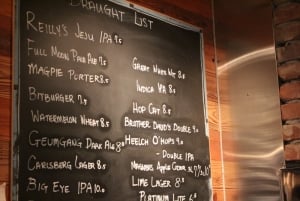 DRAUGHT LIST
REILLY'S JEJU IPA 9.5
FULL MOON PALE ALE 7.5
MAGPIE PORTER 8.5
BITBURGER 7.5
WATERMELON WHEAT 8.5
GEUMGANG DARK ALE 8.0
CARLSBERG LAGER 8.5
BIG EYE IPA 10.0
GREAT WHITE WIT 8.5
INDICA IPA 8.0
HOP CAT 8.5
BROTHER DAVID'S DOUBLE 9.0
HEELCH O'HOPS 9.0
- DOUBLE IPA
MAGNERS APPLE CIDER
LIME LAGER 8.0
PLATINUM LITE 6.0